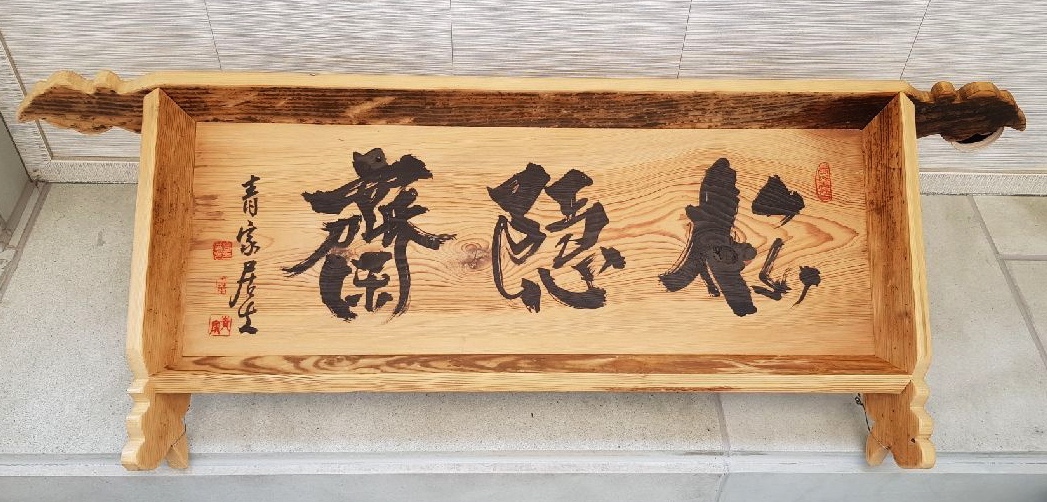 松隱齋
青家居士